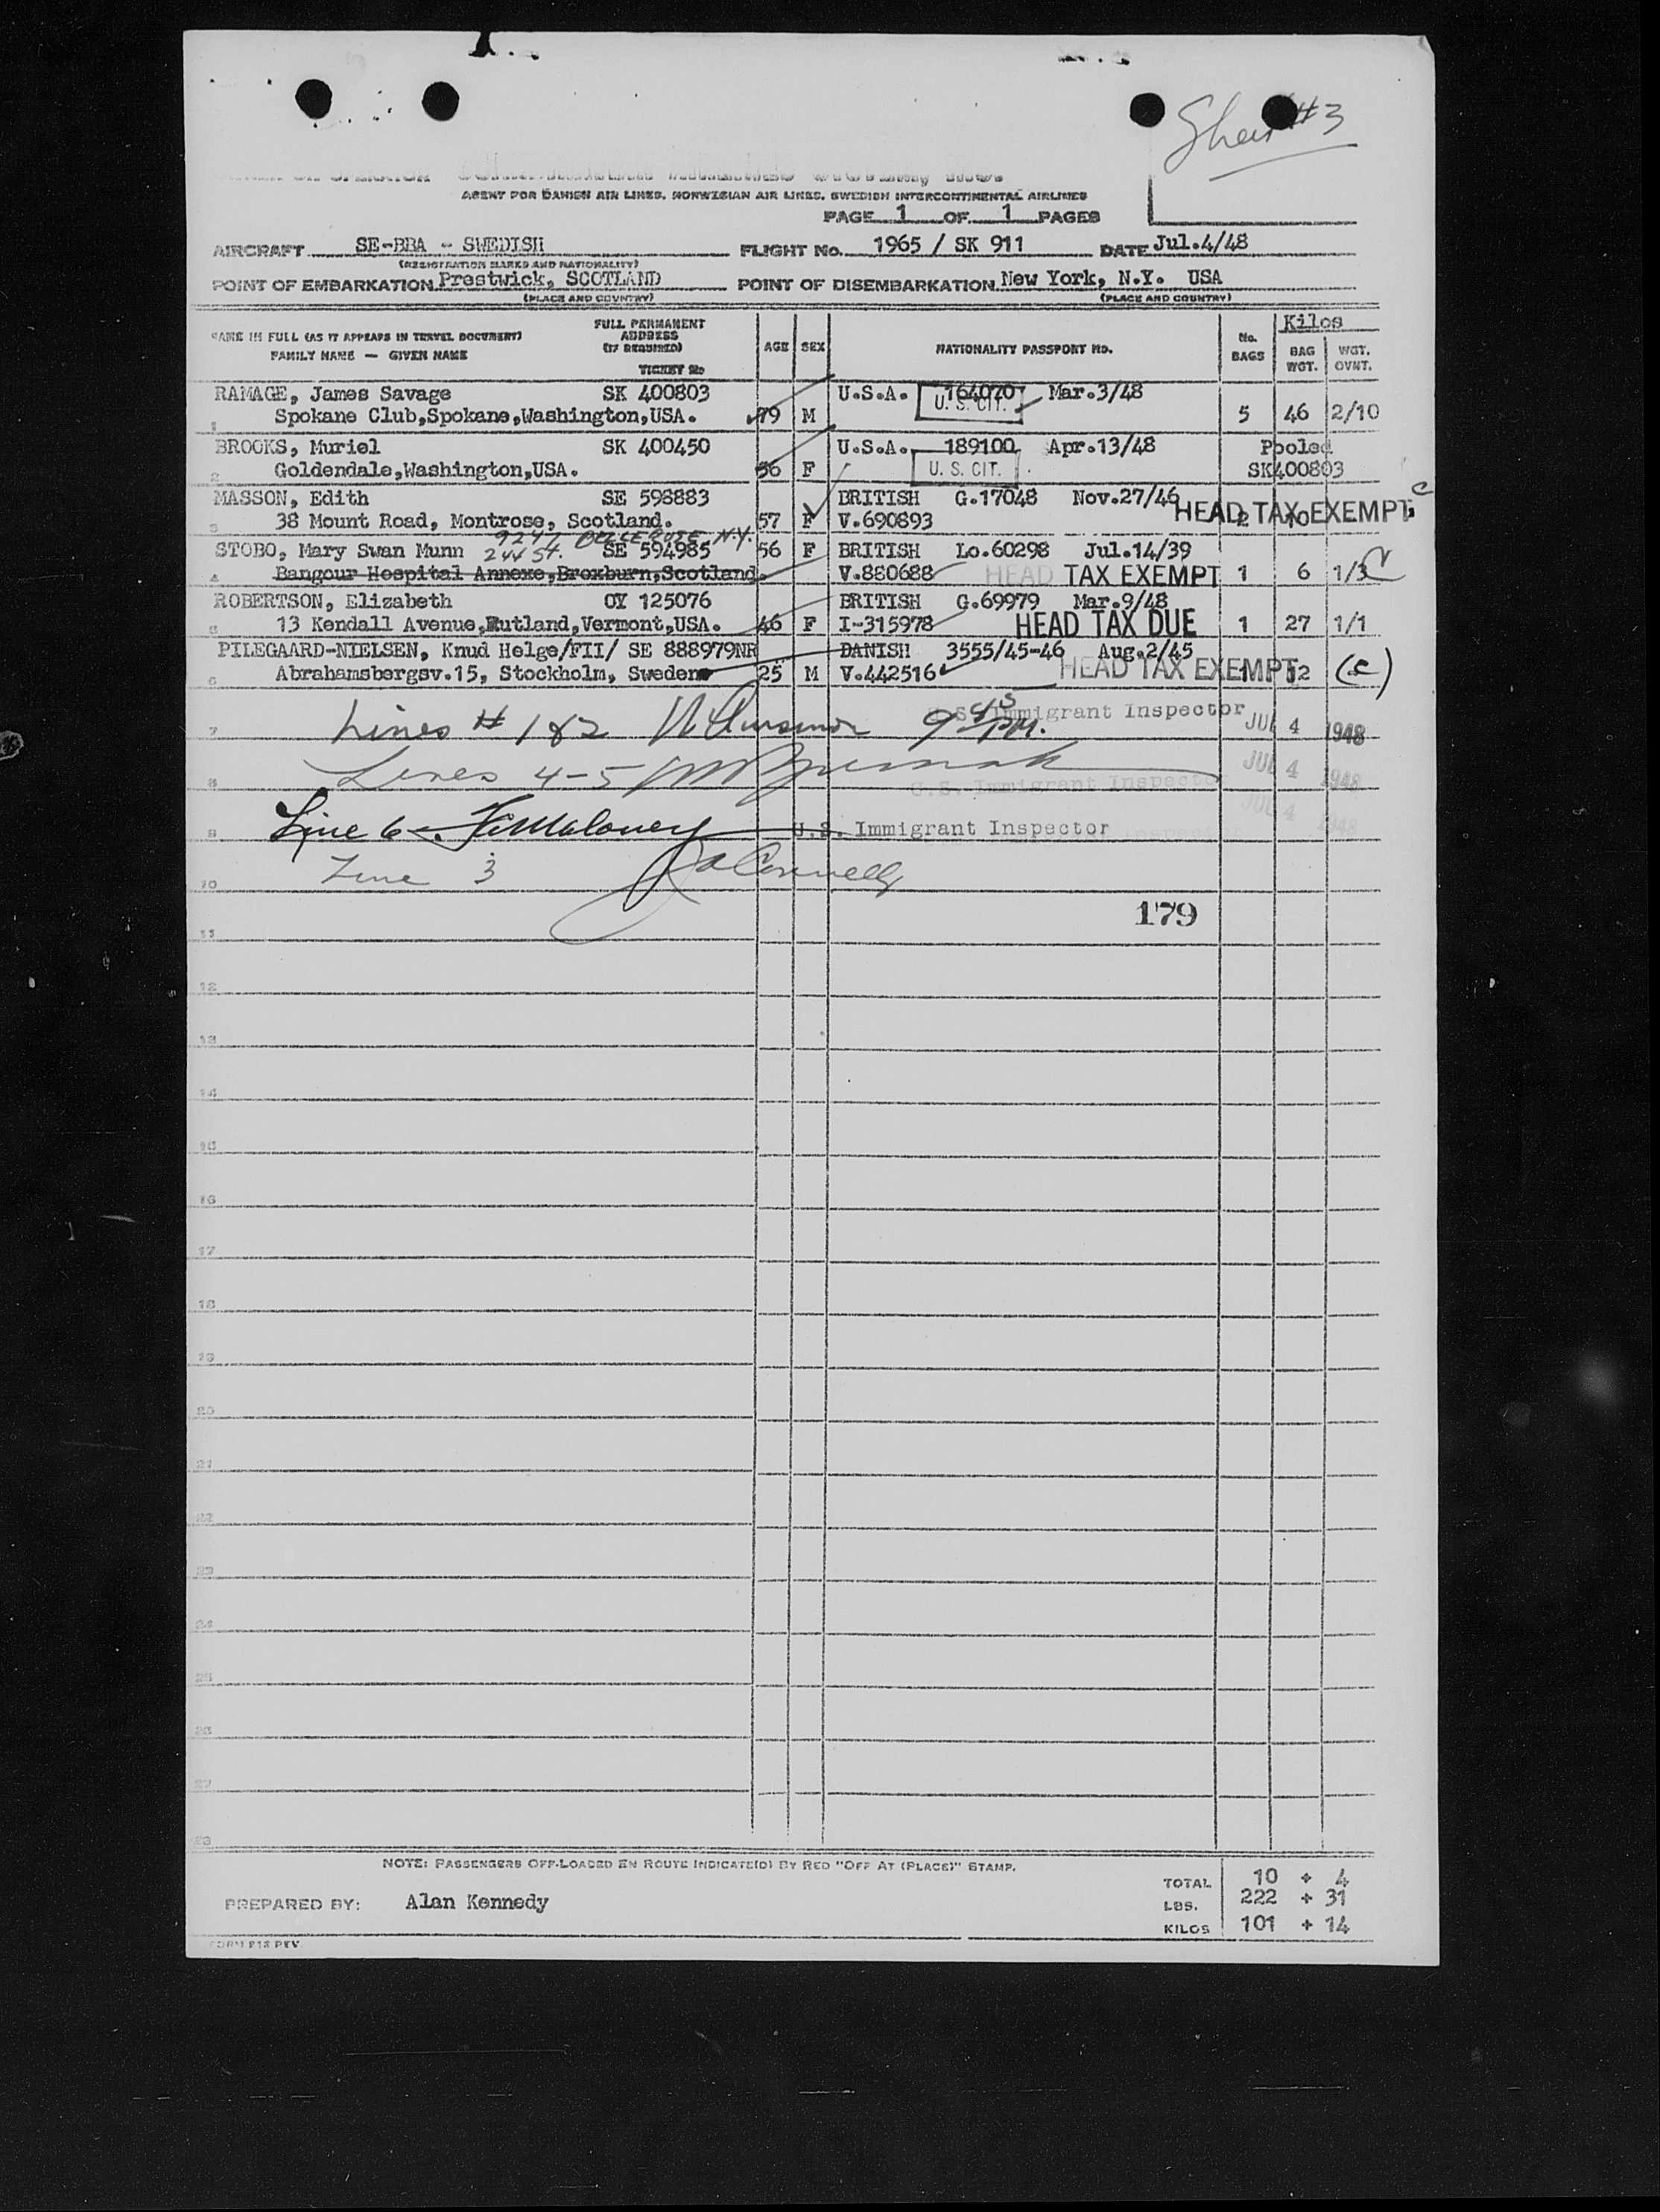 Sheet #3
AGENT FOR DANISH AIR LINES, NORWEGIAN AIR LINES, SWEDISH INTERCONTINENTAL AIRLINES
PAGE 1 OF 1 PAGES
AIRCRAFT SE-BBA - SWEDISH FLIGHT No. 1965 / SK 911 DATE Jul.4/48
(REGISTRATION MARKS AND NATIONALITY)
POINT OF EMBARKATION Prestwick, SCOTLAND POINT OF DISEMBARKATION New York, N.Y. USA
(PLACE AND COUNTRY) (PLACE AND COUNTRY)
NAME IN FULL (AS IT APPEARS IN TRAVEL DOCUMENT) FULL PERMANENT ADDRESS (IF REQUIRED) AGE SEX NATIONALITY PASSPORT No. No. BAGS Kilos BAG WGT. WGT. OVNT.
FAMILY NAME — GIVEN NAME TICKET No
RAMAGE, James Savage SK 400803 U.S.A. 164070 Mar.3/48
1 Spokane Club,Spokane,Washington,USA. 79 M U.S. CIT. 5 46 2/10
BROOKS, Muriel SK 400450 U.S.A. 189100 Apr.13/48 Pooled
2 Goldendale,Washington,USA. 56 F U. S. CIT. SK400803
MASSON, Edith SE 598883 BRITISH G.17048 Nov.27/46 HEAD TAX EXEMPT c
3 38 Mount Road, Montrose, Scotland. 57 F V.690893 2 10
9247 BELLEROSE N.Y.
244 St.
STOBO, Mary Swan Munn SE 594985 56 F BRITISH Lo.60298 Jul.14/39
4 Bangour Hospital Annexe,Broxburn,Scotland. V.880688 HEAD TAX EXEMPT 1 6 1/3
ROBERTSON, Elizabeth OY 125076 BRITISH G.69979 Mar.9/48
5 13 Kendall Avenue,Rutland,Vermont,USA. 46 F I-315978 HEAD TAX DUE 1 27 1/1
PILEGAARD-NIELSEN, Knud Helge/FII/ SE 888979NR DANISH 3555/45-46 Aug.2/45
6 Abrahamsbergsv.15, Stockholm, Sweden 25 M V.442516 HEAD TAX EXEMPT 1 12 (c)
7 Lines # 1 & 2 9 45 PM. U.S. Immigrant Inspector JUL 4 1948
8 Lines 4-5 U.S. Immigrant Inspector JUL 4 1948
9 Line 6 - Maloney U.S. Immigrant Inspector JUL 4 1948
10 Line 3 Connelly
179
11
12
13
14
15
16
17
18
19
20
21
22
23
24
25
26
27
28
NOTE: PASSENGERS OFF-LOADED EN ROUTE INDICATE(D) BY RED "OFF AT (PLACE)" STAMP.
TOTAL 10 + 4
PREPARED BY: Alan Kennedy LBS. 222 + 31
KILOS 101 + 14
FORM 218 REV.